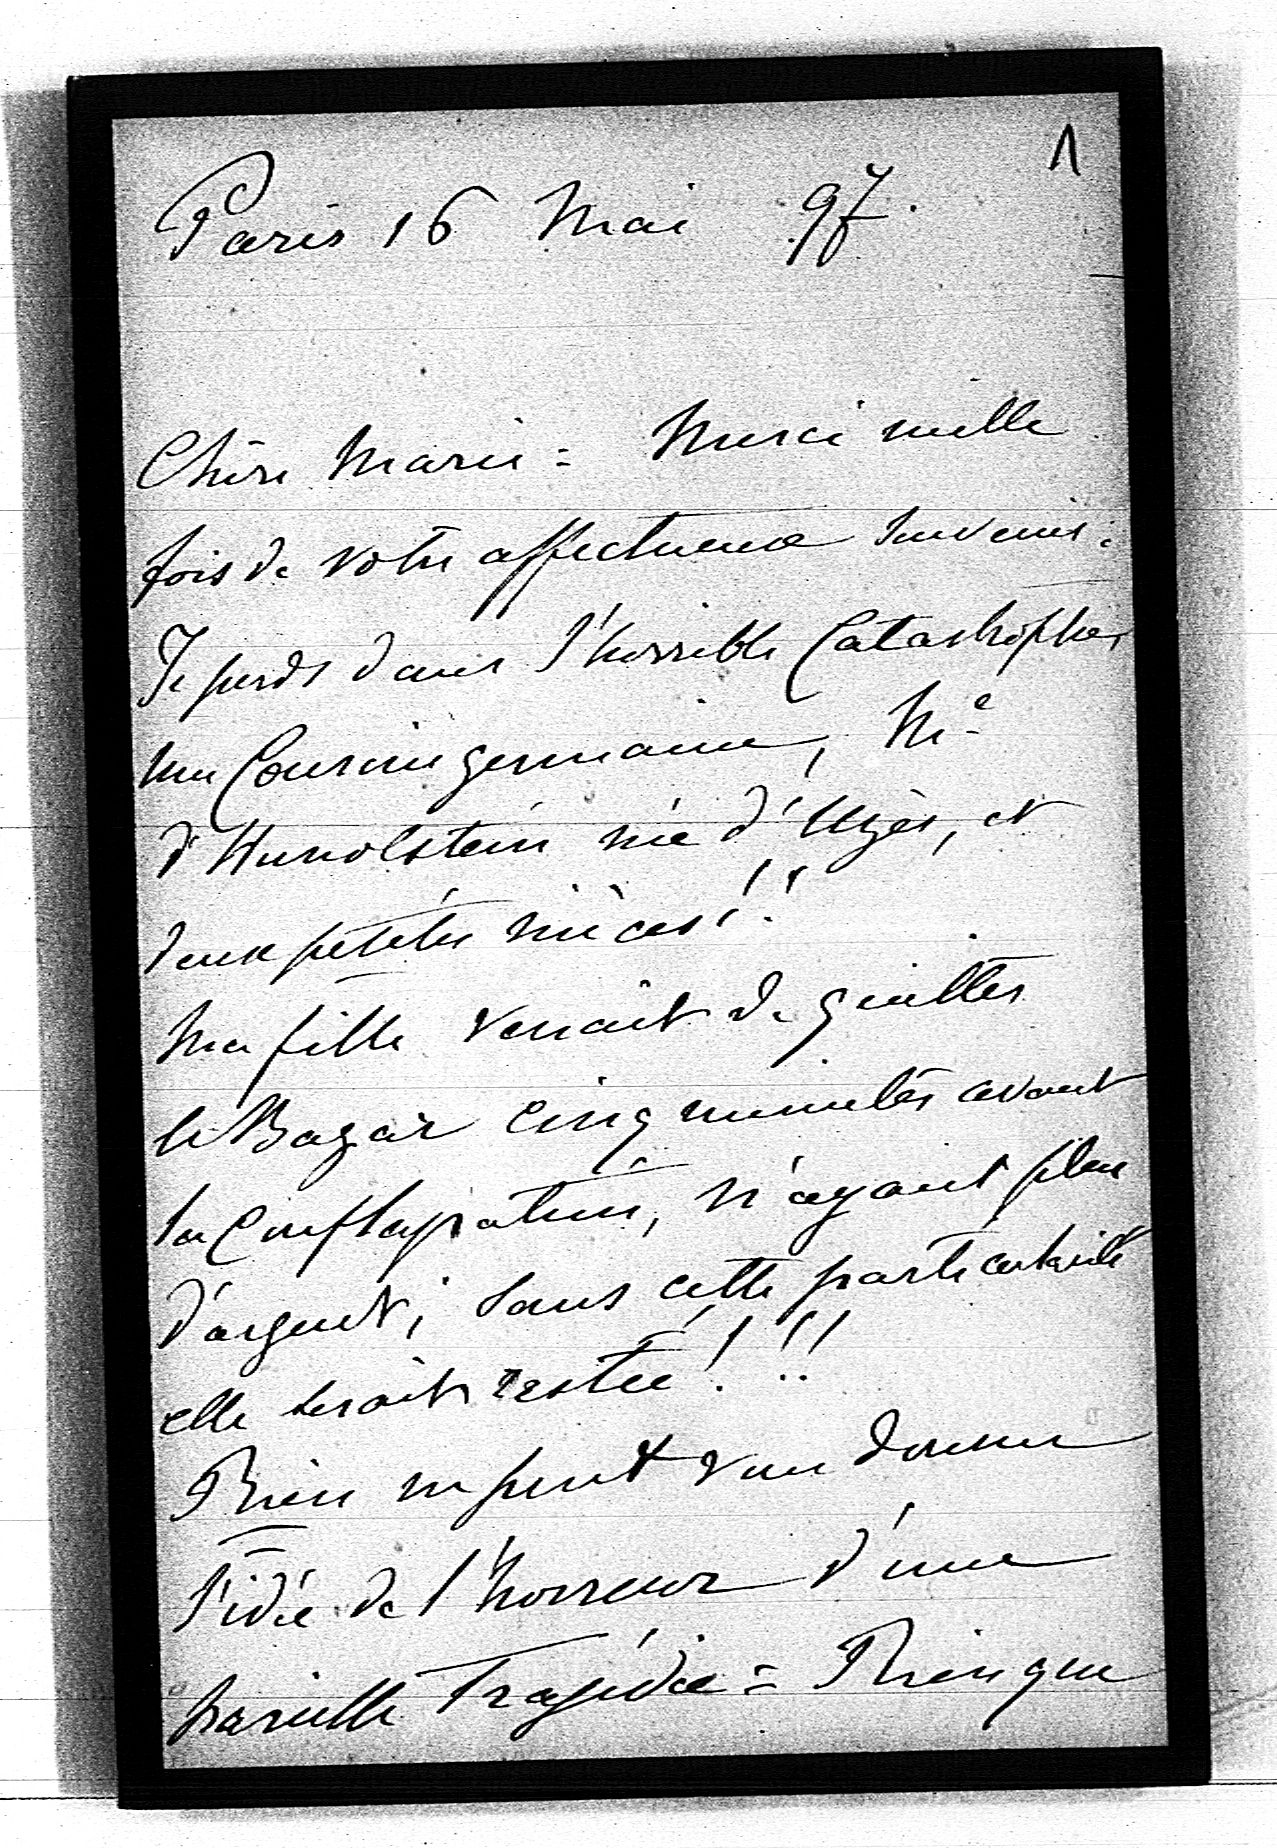 1
Paris 16 Mai 97.
Chère Marie = Merci mille
fois de votre affectueux souvenir :
Je perds dans l'horrible Catastrophe,
une Cousine germaine, Me
d'Hunolstein née d'Uzès, et
deux petites nièces !!
Ma fille venait de quitter
le Bazar cinq minutes avant
la Conflagration, n'ayant plus
d'argent ; sans cette particularité
elle serait restée ! !!
Rien ne peut vous donner
l'idée de l'horreur d'une
pareille Tragédie = Rien que